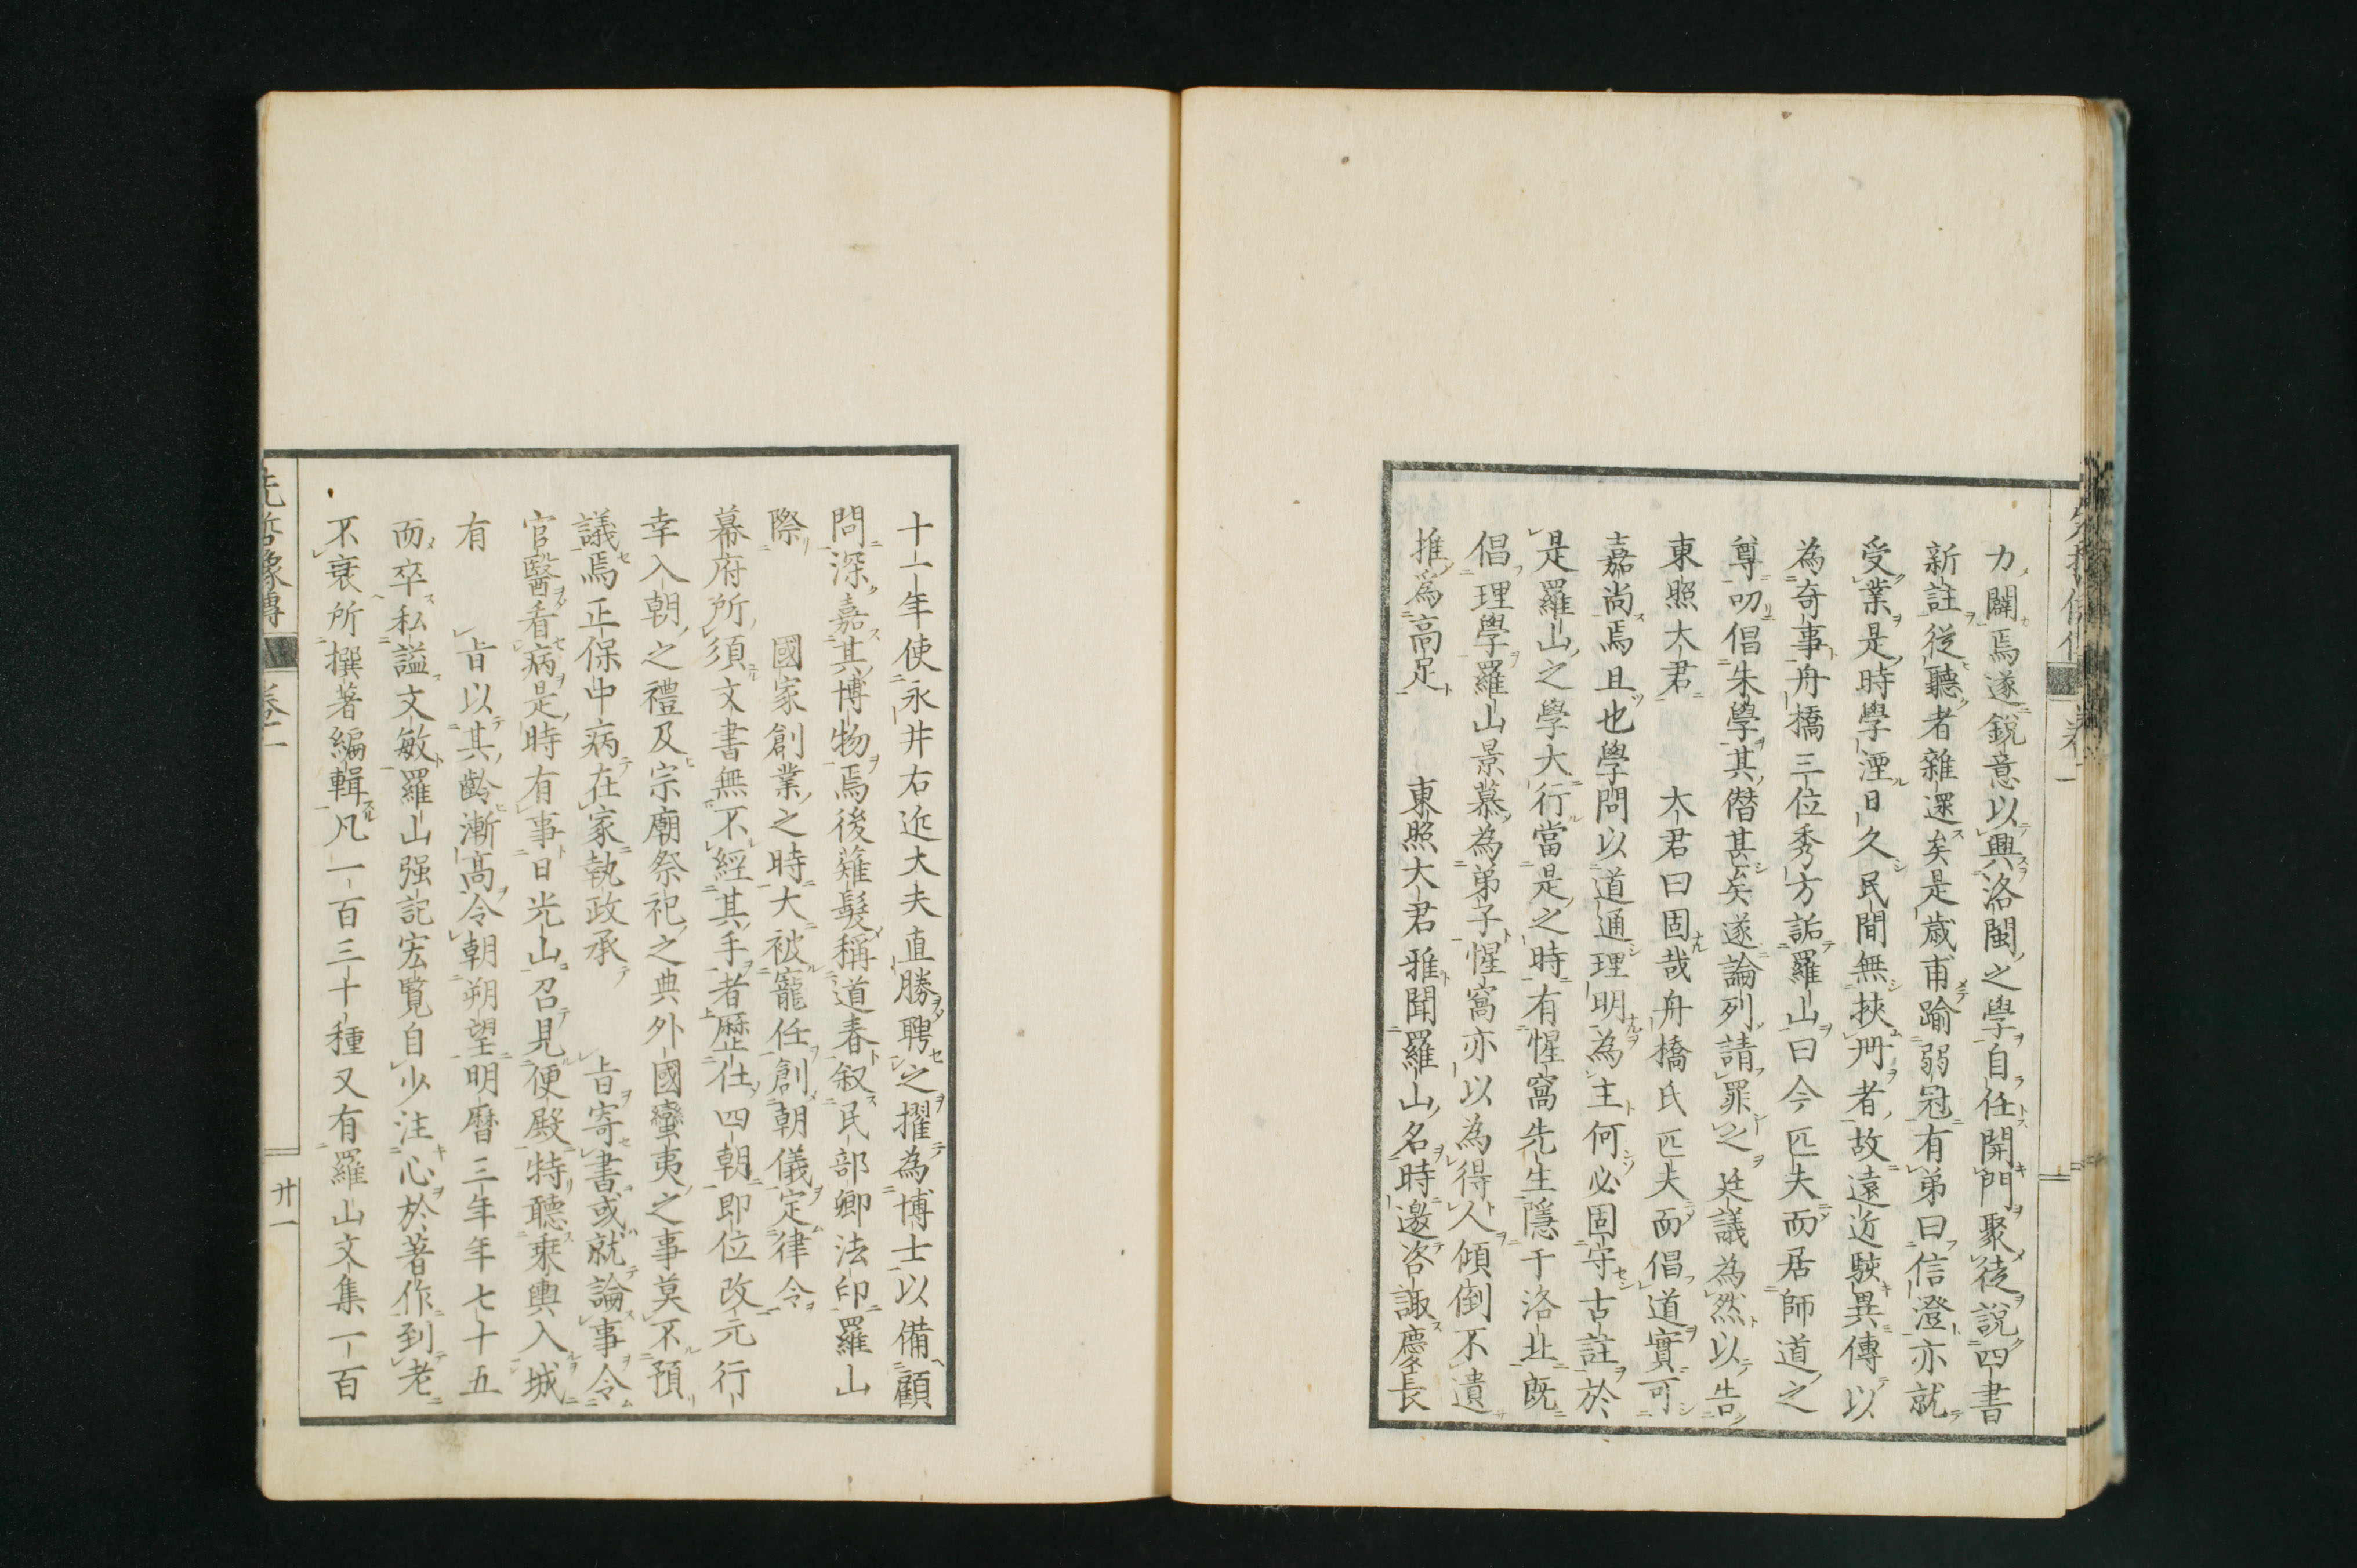 力闢焉遂鋭意以興洛閩之學自任開門聚徒説四書
新註從聽者雜還矣是歳甫踰弱冠有弟曰信澄亦就
受業是時學湮日久民間無挾冊者故遠近駭異傳以
為奇事舟橋三位秀方詬羅山曰今匹夫而居師道之
尊叨倡朱學其僣甚矣遂論列請罪之廷議為然以告
東照大君　大君曰固哉舟橋氏匹夫而倡道實可
嘉尚焉且也學問以道通理明為主何必固守古註於
是羅山之學大行當是之時有惺窩先生隱于洛北既
倡理學羅山景慕為弟子惺窩亦以為得人傾倒不遺
推為高足　東照大君雅聞羅山名時邀咨諏慶長
十一年使永井右近大夫直勝聘之擢為博士以備顧
問深嘉其博物焉後薙髮稱道春叙民部卿法印羅山
際　國家創業之時大被寵任創朝儀定律令
幕府所須文書無不經其手者歴仕四朝即位改元行
幸入朝之禮及宗廟祭祀之典外國蠻夷之事莫不預
議焉正保中病在家執政承　旨寄書或就論事令
官醫看病是時有事日光山召見便殿特聽乘輿入城
有　旨以其齡漸高令朝朔望明暦三年年七十五
而卒私謚文敏羅山强記宏覽自少注心於著作到老
不衰所撰著編輯凡一百三十種又有羅山文集一百
先哲像傳　卷一　廿一